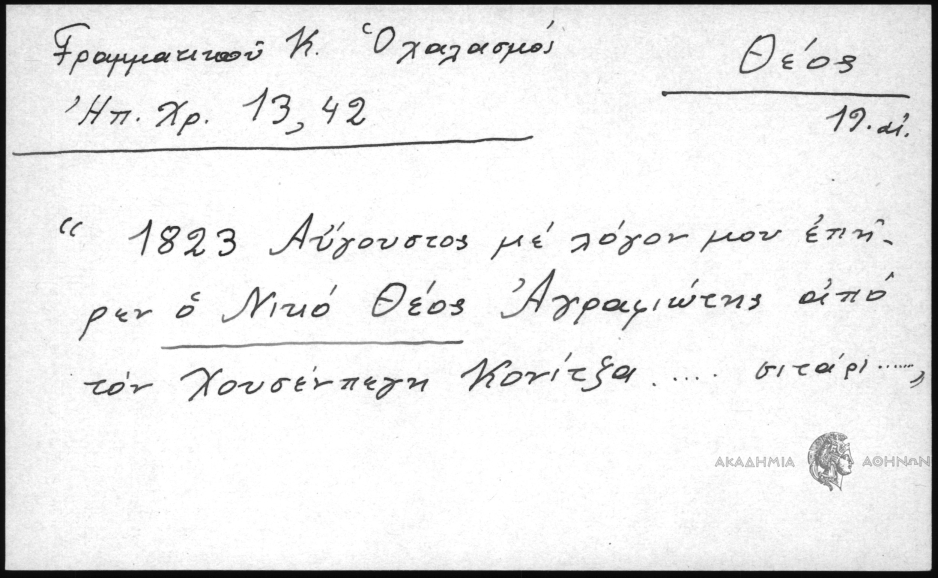 Γραμματικοῦ Κ. Ὁ χαλασμός
Θέος
Ἠπ. Χρ. 13, 42
19. αἰ.
“ 1823 Αὔγουστος μέ λόγον μου ἐπῆ-
ρεν ὁ Νικό Θέος Ἀγραφιώτης ἀπό
τόν Χουσένπεγη Κονίτζα ..... σιτάρι ......„
ΑΚΑΔΗΜΙΑ ΑΘΗΝΩΝ